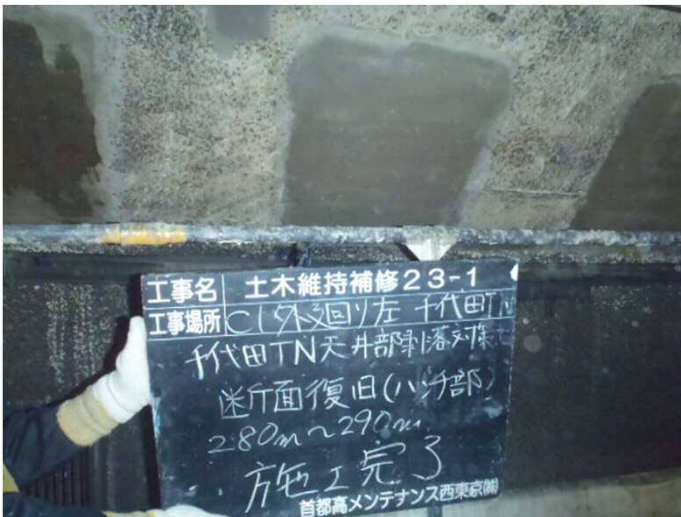 工事名 土木維持補修23-1
工事場所 C1外廻り左 千代田TN
千代田TN天井部剥落対策
断面復旧(ハンチ部)
280m～290m
施工完了
首都高メンテナンス西東京㈱